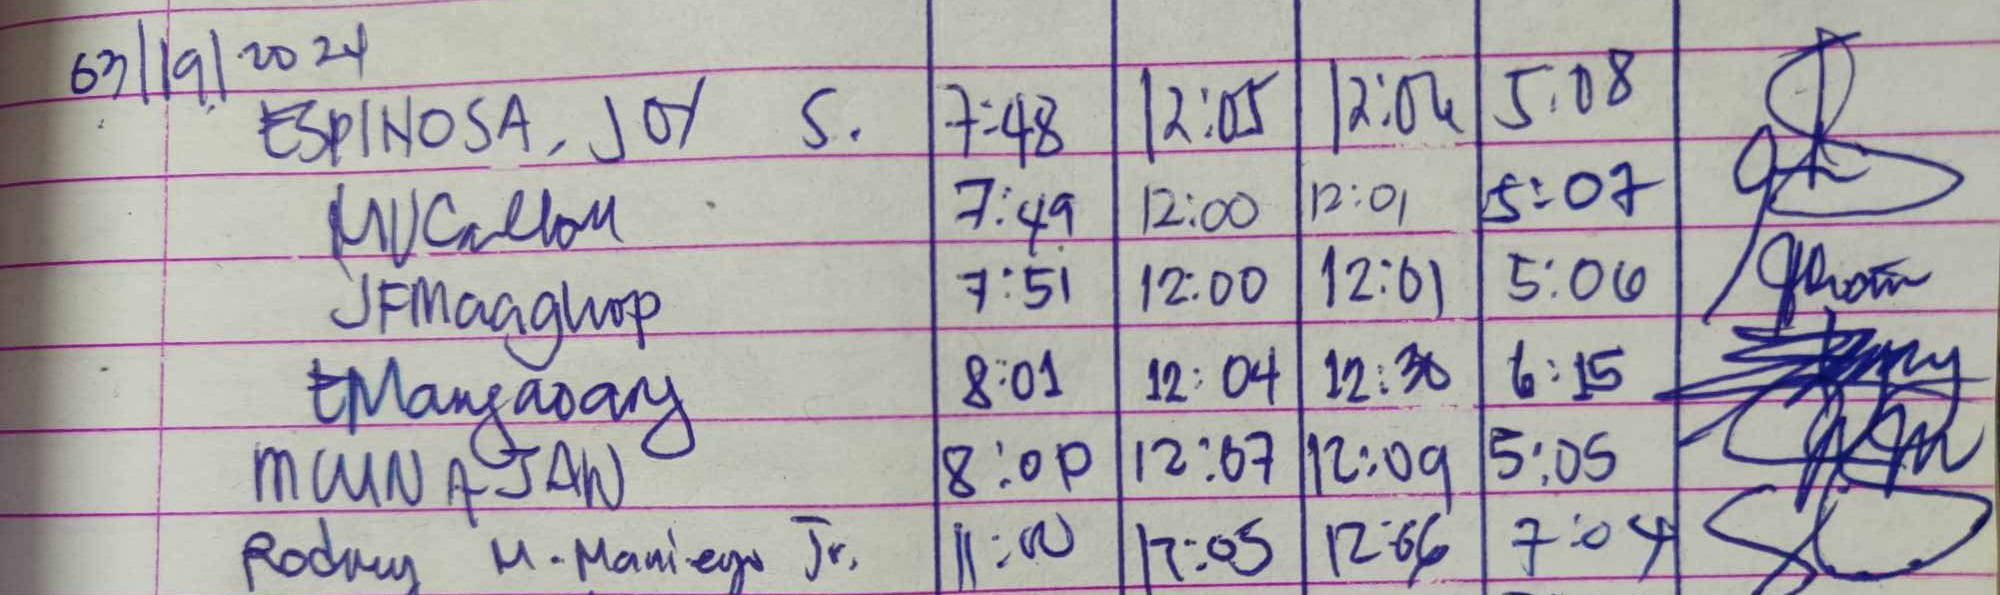 03/19/2024
ESPINOSA, JOY S. 7:48 12:05 12:06 5:08
7:49 12:00 12:01 5:07
JFMaaghop 7:51 12:00 12:01 5:06
EMangaoang 8:01 12:04 12:30 6:15
8:00 12:07 12:09 5:05
Rodney M. Maniego Jr. 11:00 12:05 12:06 7:04